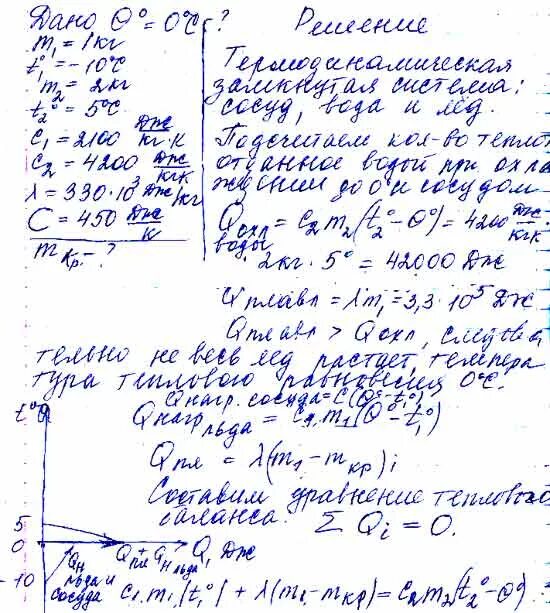 Дано θ° = 0°С ?
m₁ = 1кг
t₁° = -10°С
m₂ = 2кг
t₂° = 5°С
c₁ = 2100 Дж/кг·К
c₂ = 4200 Дж/кгК
λ = 330·10³ Дж/кг
C = 450 Дж/К
mкр. - ?
Решение
Термодинамическая
замкнутая система:
сосуд, вода и лёд.
Подсчитаем кол-во теплот
отданное водой при охла
ждении до 0 и сосудом
Qохл воды = c₂m₂(t₂° - θ°) = 4200 Дж/кгК
· 2кг · 5° = 42000 Дж
Qплавл = λm₁ = 3,3 · 10⁵ Дж
Qплавл > Qохл, следова
тельно не весь лёд растает, темпера
тура теплового равновесия 0°С.
Qнагр. сосуда = C(θ° - t₁°)
Qнагр льда = c₁m₁(θ° - t₁°)
Qпл = λ(m₁ - mкр);
Составим уравнение теплового
баланса. Σ Qi = 0.
t°
5
0
Qпл + Qн льда Q, Дж
Qн льда и сосуда
- 10
c₁m₁(t₁°) + λ(m₁ - mкр) = c₂m₂(t₂° - θ°)